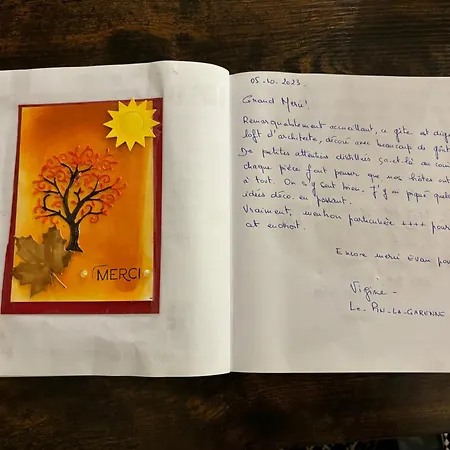 MERCI
05.10.2023
Grand Merci!
Remarquablement accueillant, ce gîte est dig
loft d'architecte, décoré avec beaucoup de goût
De petites attentions distillés ça et là au
chaque pièce font penser que nos hôtes ont
à tout. On s'y sent bien. J'y ai piqué quel
idées déco. en passant.
Vraiment, mention particulière ++++ pour
cet endroit.
Encore merci
Virginie -
Le PIN-LA-GARENNE